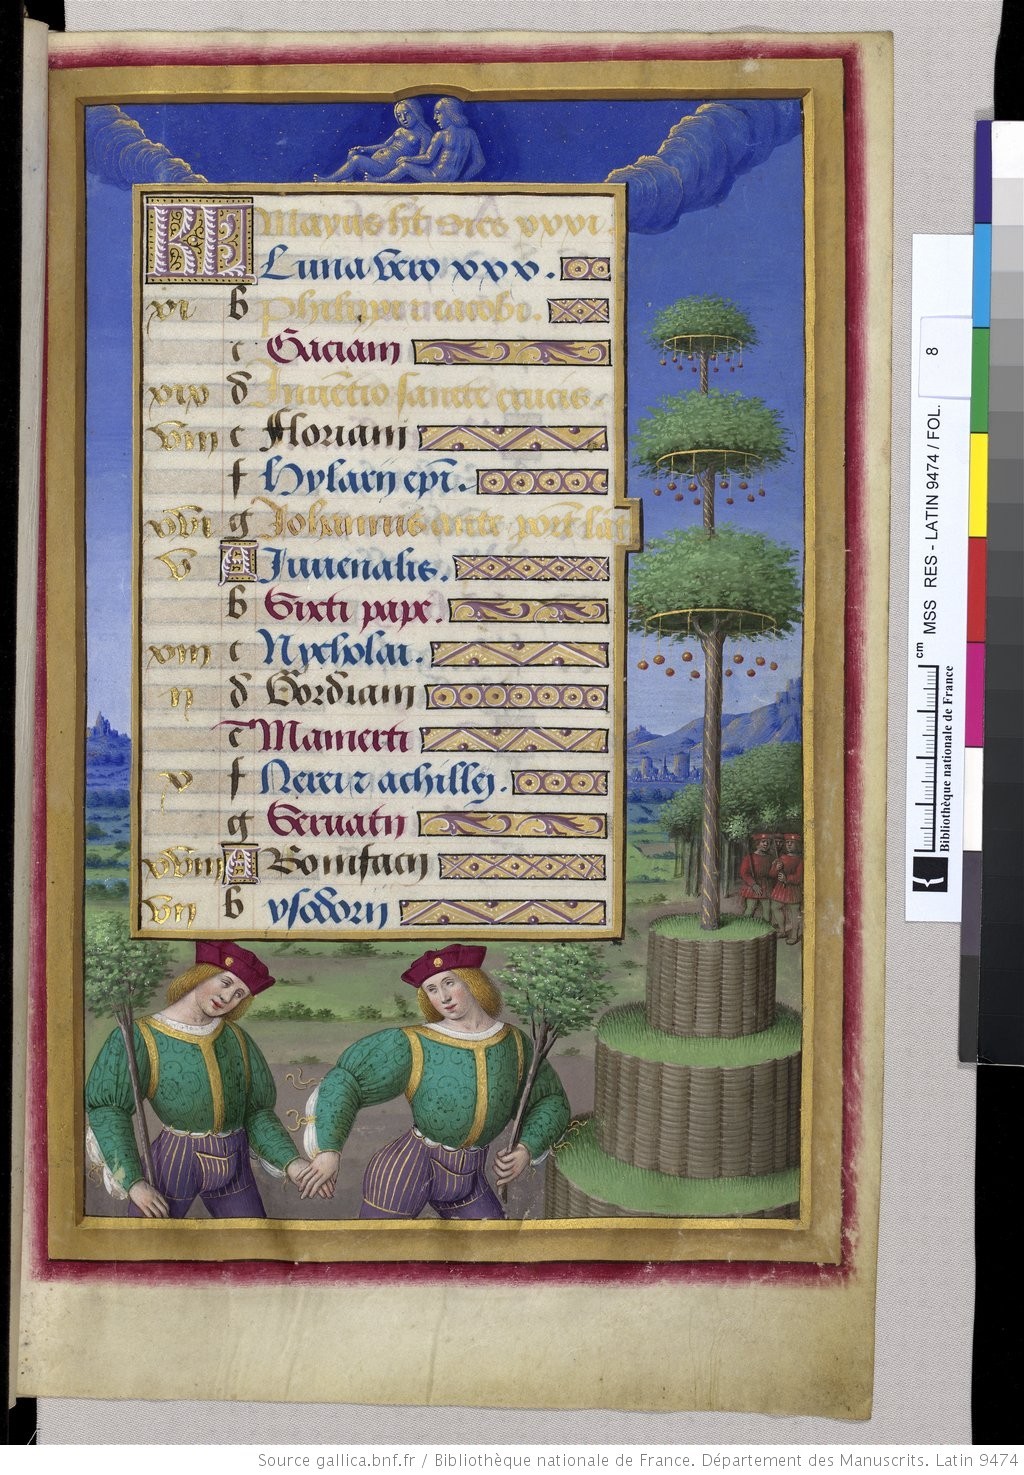 KL Mayus ht dies xxxi.
Luna vero xxx.
xi b Philippi et iacobi.
c Gaciani
xix d Inuētio sancte crucis.
viii e Floriani
f Hylarij epī.
xvi g Johannis ante port lat
v A Iuuenalis.
b Sixti pape.
xiii c Nycholai.
ii d Gordiani
e Mamerti
x f Nerei et achillej.
g Seruatij
xviii A Bonifacij
vii b ysodorij
8
MSS RES - LATIN 9474 / FOL.
cm
Bibliothèque nationale de France
Source gallica.bnf.fr / Bibliothèque nationale de France. Département des Manuscrits. Latin 9474